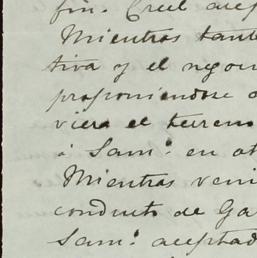 fin. Creel acep
Mientras tant
tiva y el negoc
proponiendose
viera el terren
á Sam.º en ot
Mientras veni
conducto de Ga
Sam.º aceptad